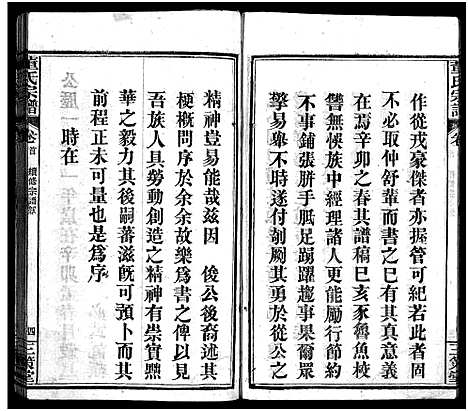 董氏宗譜 卷
作從戎豪傑者亦握管可紀若
仲舒輩而其真意義
在焉辛卯之春其譜稿已亥豕魯魚校
讐無悞族中經理諸人更能勵行節約
不事鋪張胼手胝足踴躍趨事果爾眾
擎易舉不時遂付剞劂其勇於從公之
精神豈易能哉茲因 俊公
梗概問序於余余故樂爲書之俾以見
吾族人具勞動創造之精神有崇實黜
華之毅力其後嗣蕃滋旣可預卜而其
前程正未可量也是爲序
時在
公歷一 年歲在辛卯
董氏宗譜 卷首 續修宗譜序 四 三策堂